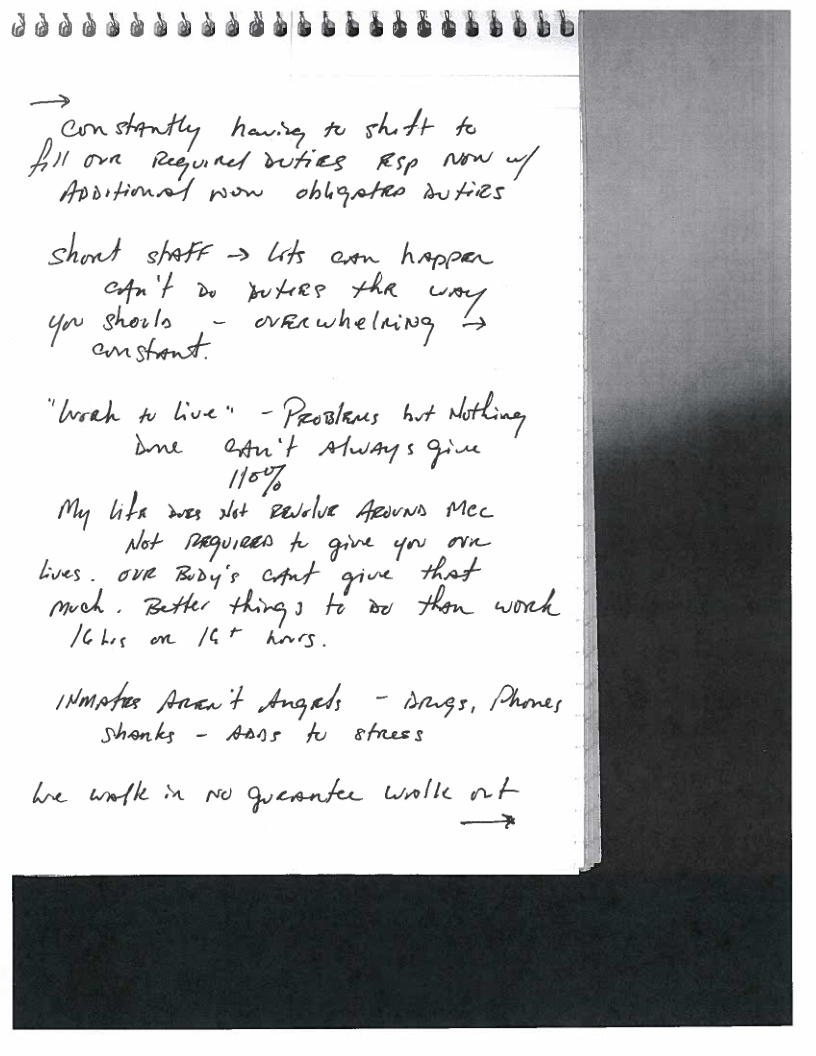 →
Constantly having to shift to
fill our Required Duties Esp now w/
Additional now obligated Duties
Short staff → lots can happen
can't Do Duties the way
you should - overwhelming →
constant.
"Work to Live" - Problems but Nothing
Done can't Always give
110%
My Life Does Not Revolve Around MCC
Not Required to give you our
Lives. our Body's can't give that
Much. Better things to Do than work
16 hrs or 16+ hours.
INMates Aren't Angels - Drugs, Phones
Shanks - ADDs to stress
We walk in no guarantee walk out
→